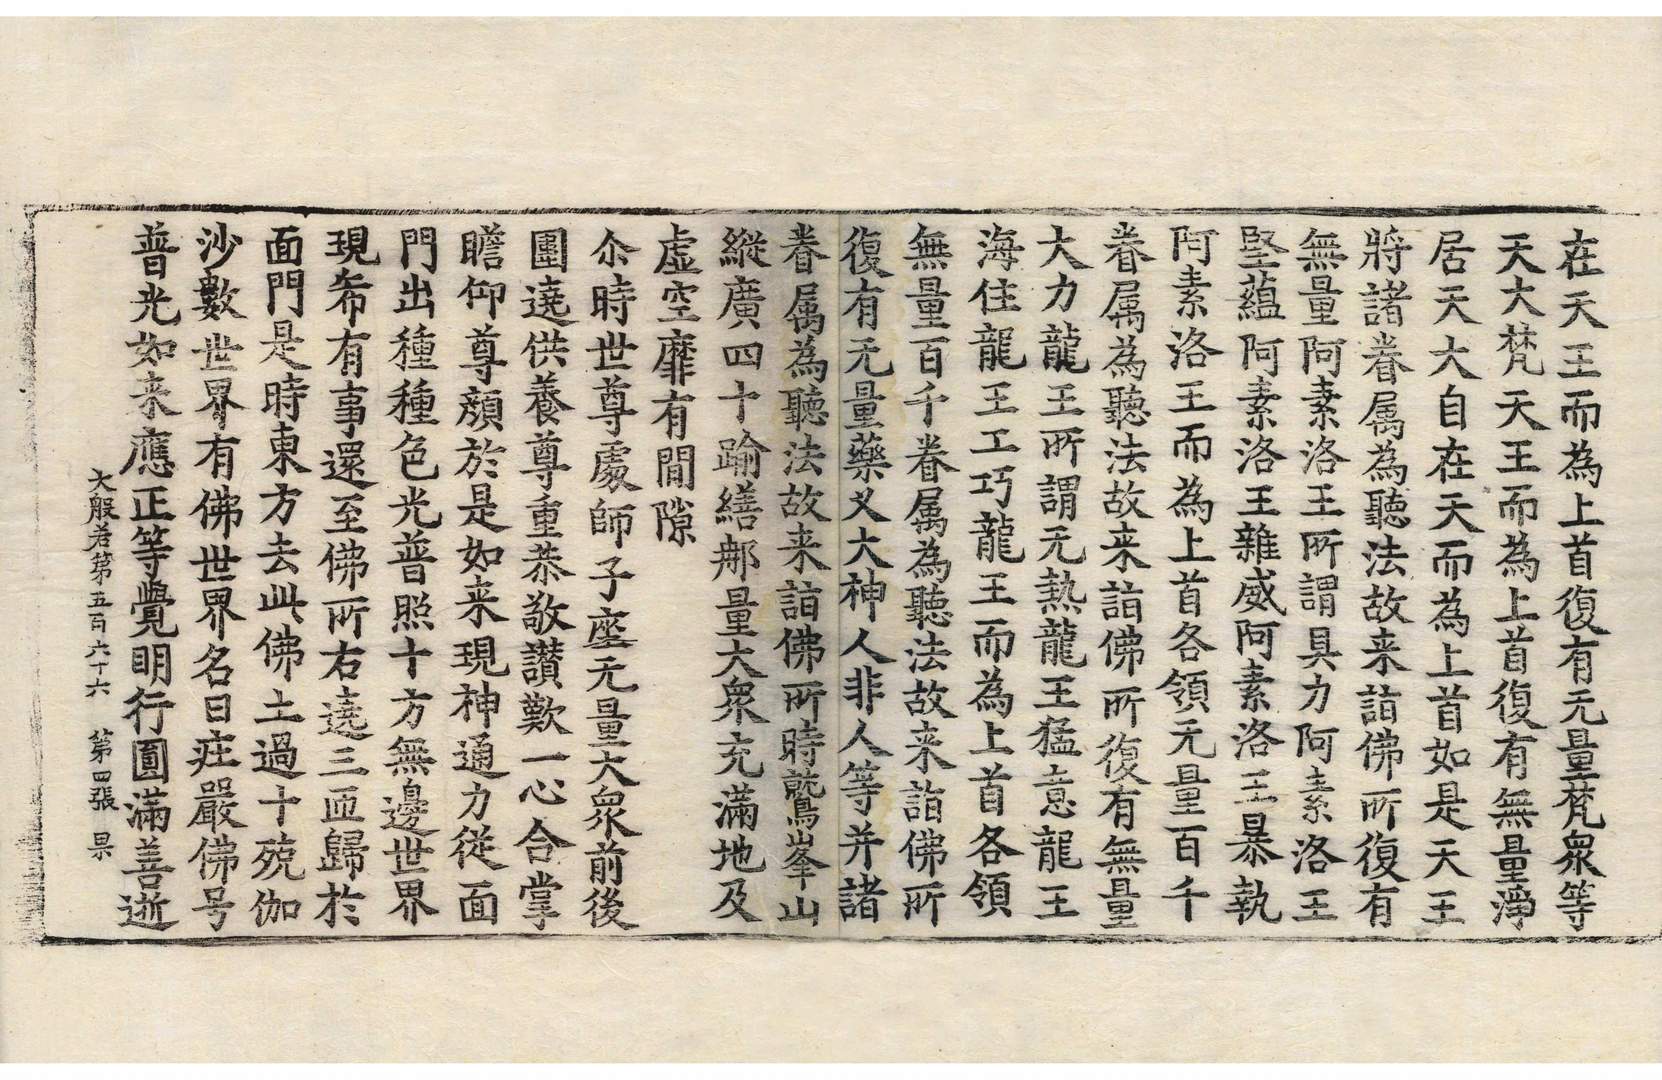 在天王而為上首復有无量梵衆等
天大梵天王而為上首復有無量淨
居天大自在天而為上首如是天王
將諸眷属為聽法故来詣佛所復有
無量阿素洛王所謂具力阿素洛王
堅蘊阿素洛王雜威阿素洛王暴執
阿素洛王而為上首各領无量百千
眷属為聽法故来詣佛所復有無量
大力龍王所謂无熱龍王猛意龍王
海住龍王工巧龍王而為上首各領
無量百千眷属為聽法故来詣佛所
復有无量藥叉大神人非人等并諸
眷属為聽法故来詣佛所時鷲峯山
縱廣四十踰繕那量大衆充滿地及
虛空靡有間隙
尒時世尊處師子座无量大衆前後
圍遶供養尊重恭敬讃歎一心合掌
瞻仰尊顔於是如来現神通力從面
門出種種色光普照十方無邊世界
現希有事還至佛所右遶三帀歸於
面門是時東方去此佛土過十殑伽
沙數世界有佛世界名曰庄嚴佛号
普光如来應正等覺明行圓滿善逝
大般若第五百六十六　第四張　杲